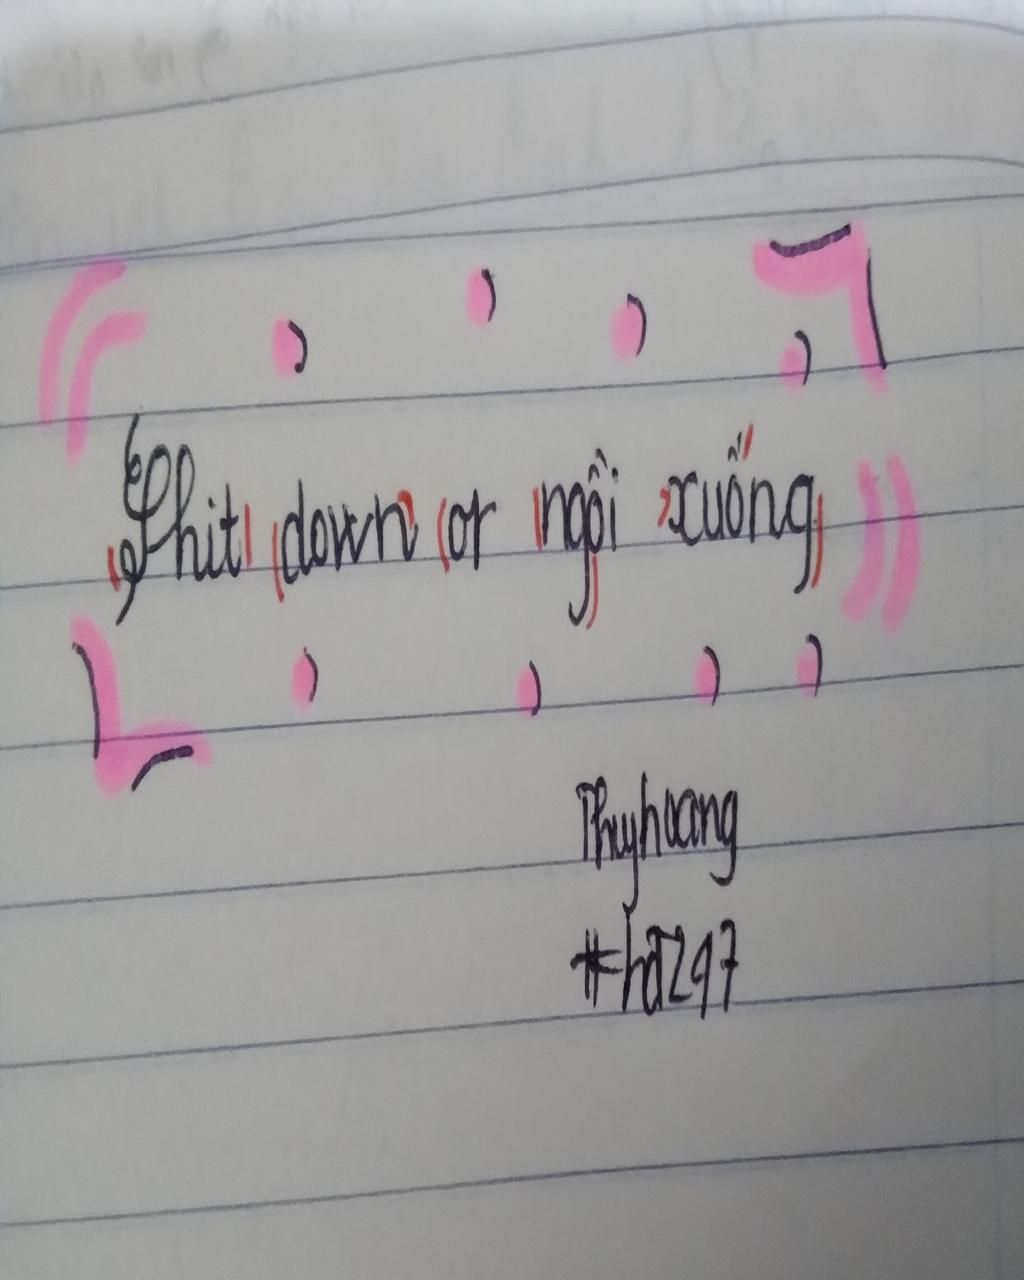 Shit down or ngồi xuống
Thuyhoang
#hđ297